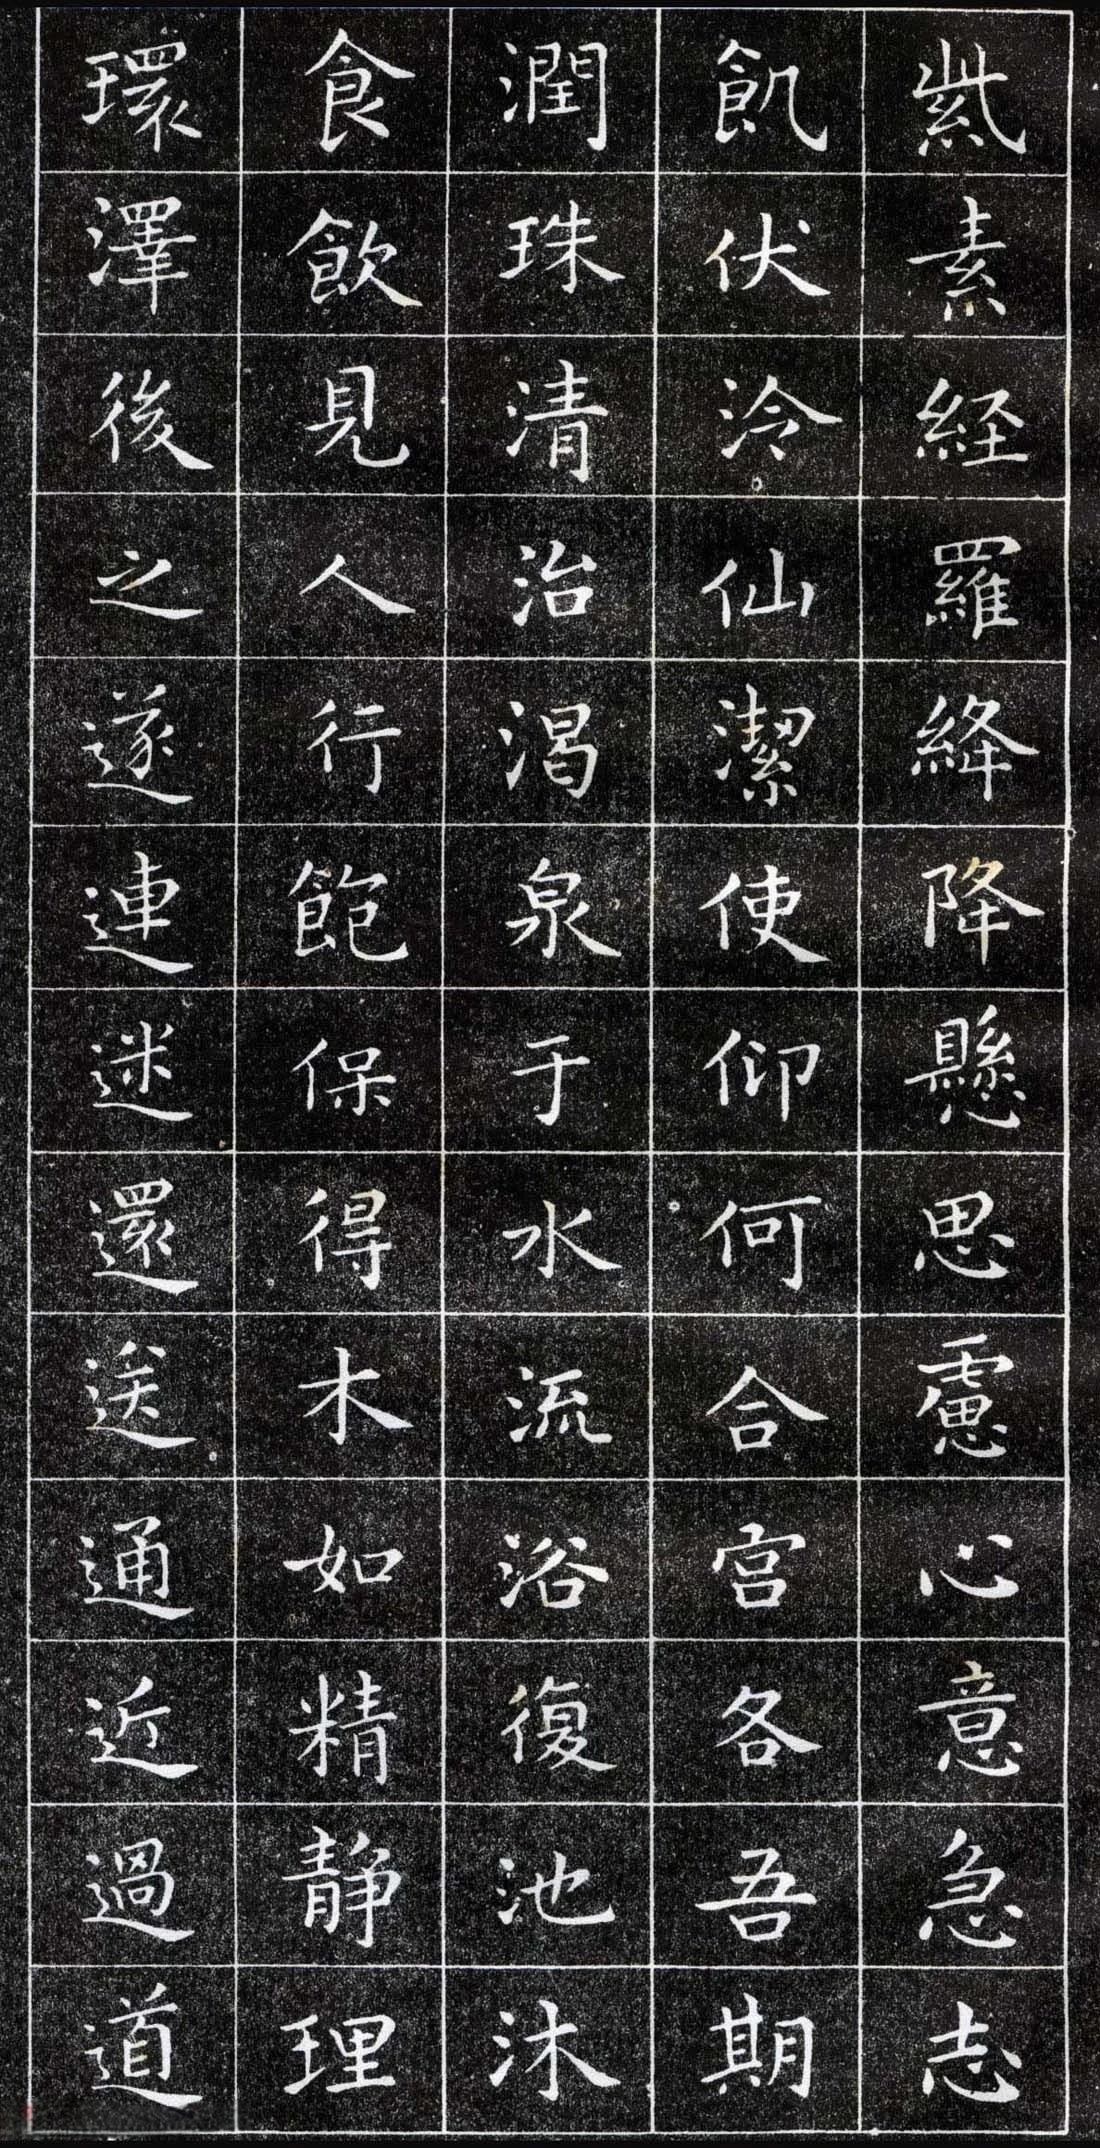 紫素経羅絳降懸思慮心意急志
飢伏泠仙潔使仰何合宫各吾期
潤珠清治渴泉于水流浴復池沐
食飲見人行飽保得木如精静理
環澤後之遂連迷還送通近過道